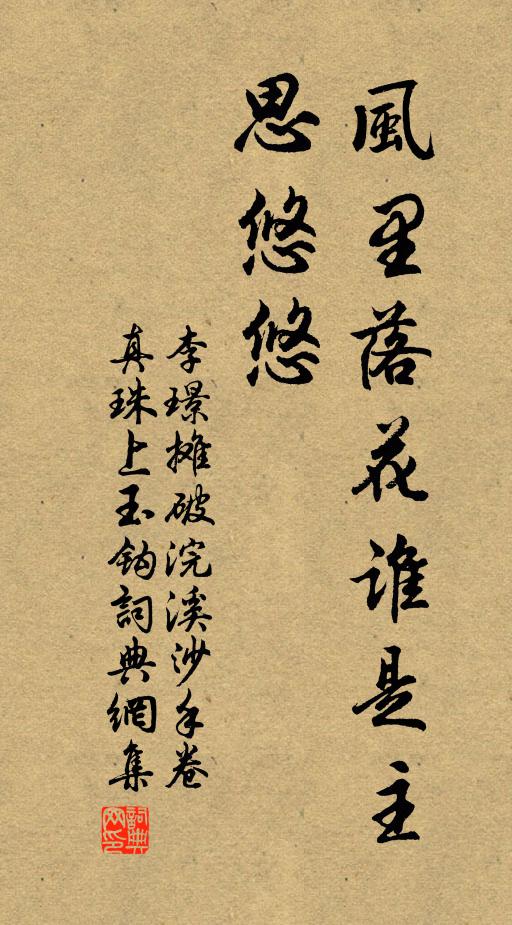 風里落花誰是主
思悠悠
李璟攤破浣溪沙手卷
真珠上玉鈎詞典網集
詞典網印